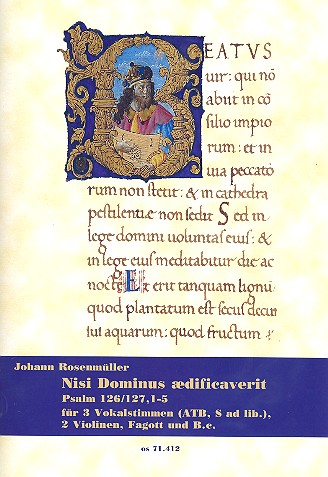 BEATVS
uir: qui nō
abiit in cō
silio impio
rum: et in
uia peccato᷑
rum non stetit: & in cathedra
pestilentie non sedit Sed in
lege domini uoluntas eius: &
in lege eius meditabitur die ac
nocte Et erit tanquam lignū
quod plantatum est secus decur
sus aquarum: quod fructum
Johann Rosenmüller
Nisi Dominus ædificaverit
Psalm 126/127,1-5
für 3 Vokalstimmen (ATB, S ad lib.),
2 Violinen, Fagott und B.c.
os 71.412